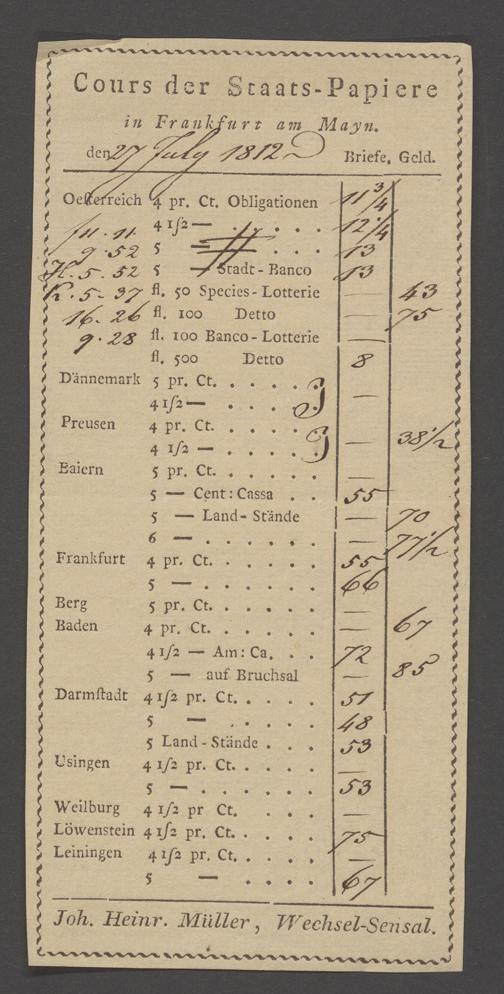 Cours der Staats-Papiere
in Frankfurt am Mayn.
den 27 July 1812 Briefe. Geld.
Oesterreich 4 pr. Ct. Obligationen 11 3/4
11. 11 4 1/2 — . . . . 12 1/4
9. 52 5 — 13
K. 5. 52 5 — Stadt-Banco 13
K. 5. 37 fl. 50 Species-Lotterie — 43
16. 26 fl. 100 Detto — 75
9. 28 fl. 100 Banco-Lotterie
fl. 500 Detto 8
Dännemark 5 pr. Ct. . . . . .
4 1/2 — . . . . —
Preusen 4 pr. Ct. . . . . .
4 1/2 — . . . . — 38 1/2
Baiern 5 pr. Ct. . . . . . —
5 — Cent: Cassa . . 55
5 — Land-Stände — 70
6 — . . . . . . — 77 1/2
Frankfurt 4 pr. Ct. . . . . . 55
5 — . . . . . . 66
Berg 5 pr. Ct. . . . . . —
Baden 4 pr. Ct. . . . . . — 67
4 1/2 — Am: Ca. . . 72
5 — auf Bruchsal — 85
Darmstadt 4 1/2 pr. Ct. . . . . 51
5 — . . . . . 48
5 Land-Stände . . . 53
Usingen 4 1/2 pr. Ct. . . . . —
5 — . . . . . . 53
Weilburg 4 1/2 pr Ct. . . . . —
Löwenstein 4 1/2 pr. Ct. . . . . 75
Leiningen 4 1/2 pr. Ct. . . . . —
5 — . . . . 67
Joh. Heinr. Müller, Wechsel-Sensal.